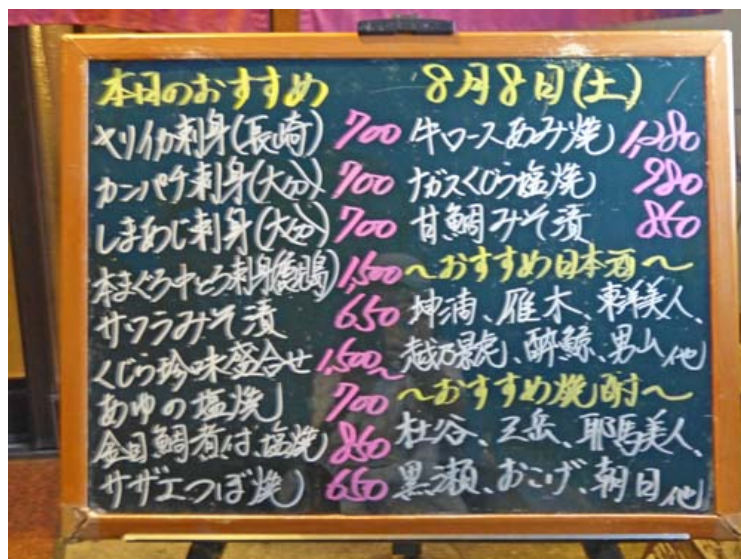 本日のおすすめ
ヤリイカ刺身(長崎) 700
カンパチ刺身(大分) 700
しまあじ刺身(大分) 700
本まぐろ中とろ刺身 1,500
サワラみそ漬 650
くじら珍味盛合せ 1,500~
あゆの塩焼 700
金目鯛煮付、塩焼 860
サザエつぼ焼 650
8月8日(土)
牛ロースあみ焼 1,280
ナガスくじら塩焼 980
甘鯛みそ漬 860
~おすすめ日本酒~
雁木、東洋美人、
越乃景虎、酔鯨、男山他
~おすすめ焼酎~
杜谷、三岳、耶馬美人、
黒瀬、おこげ、朝日他